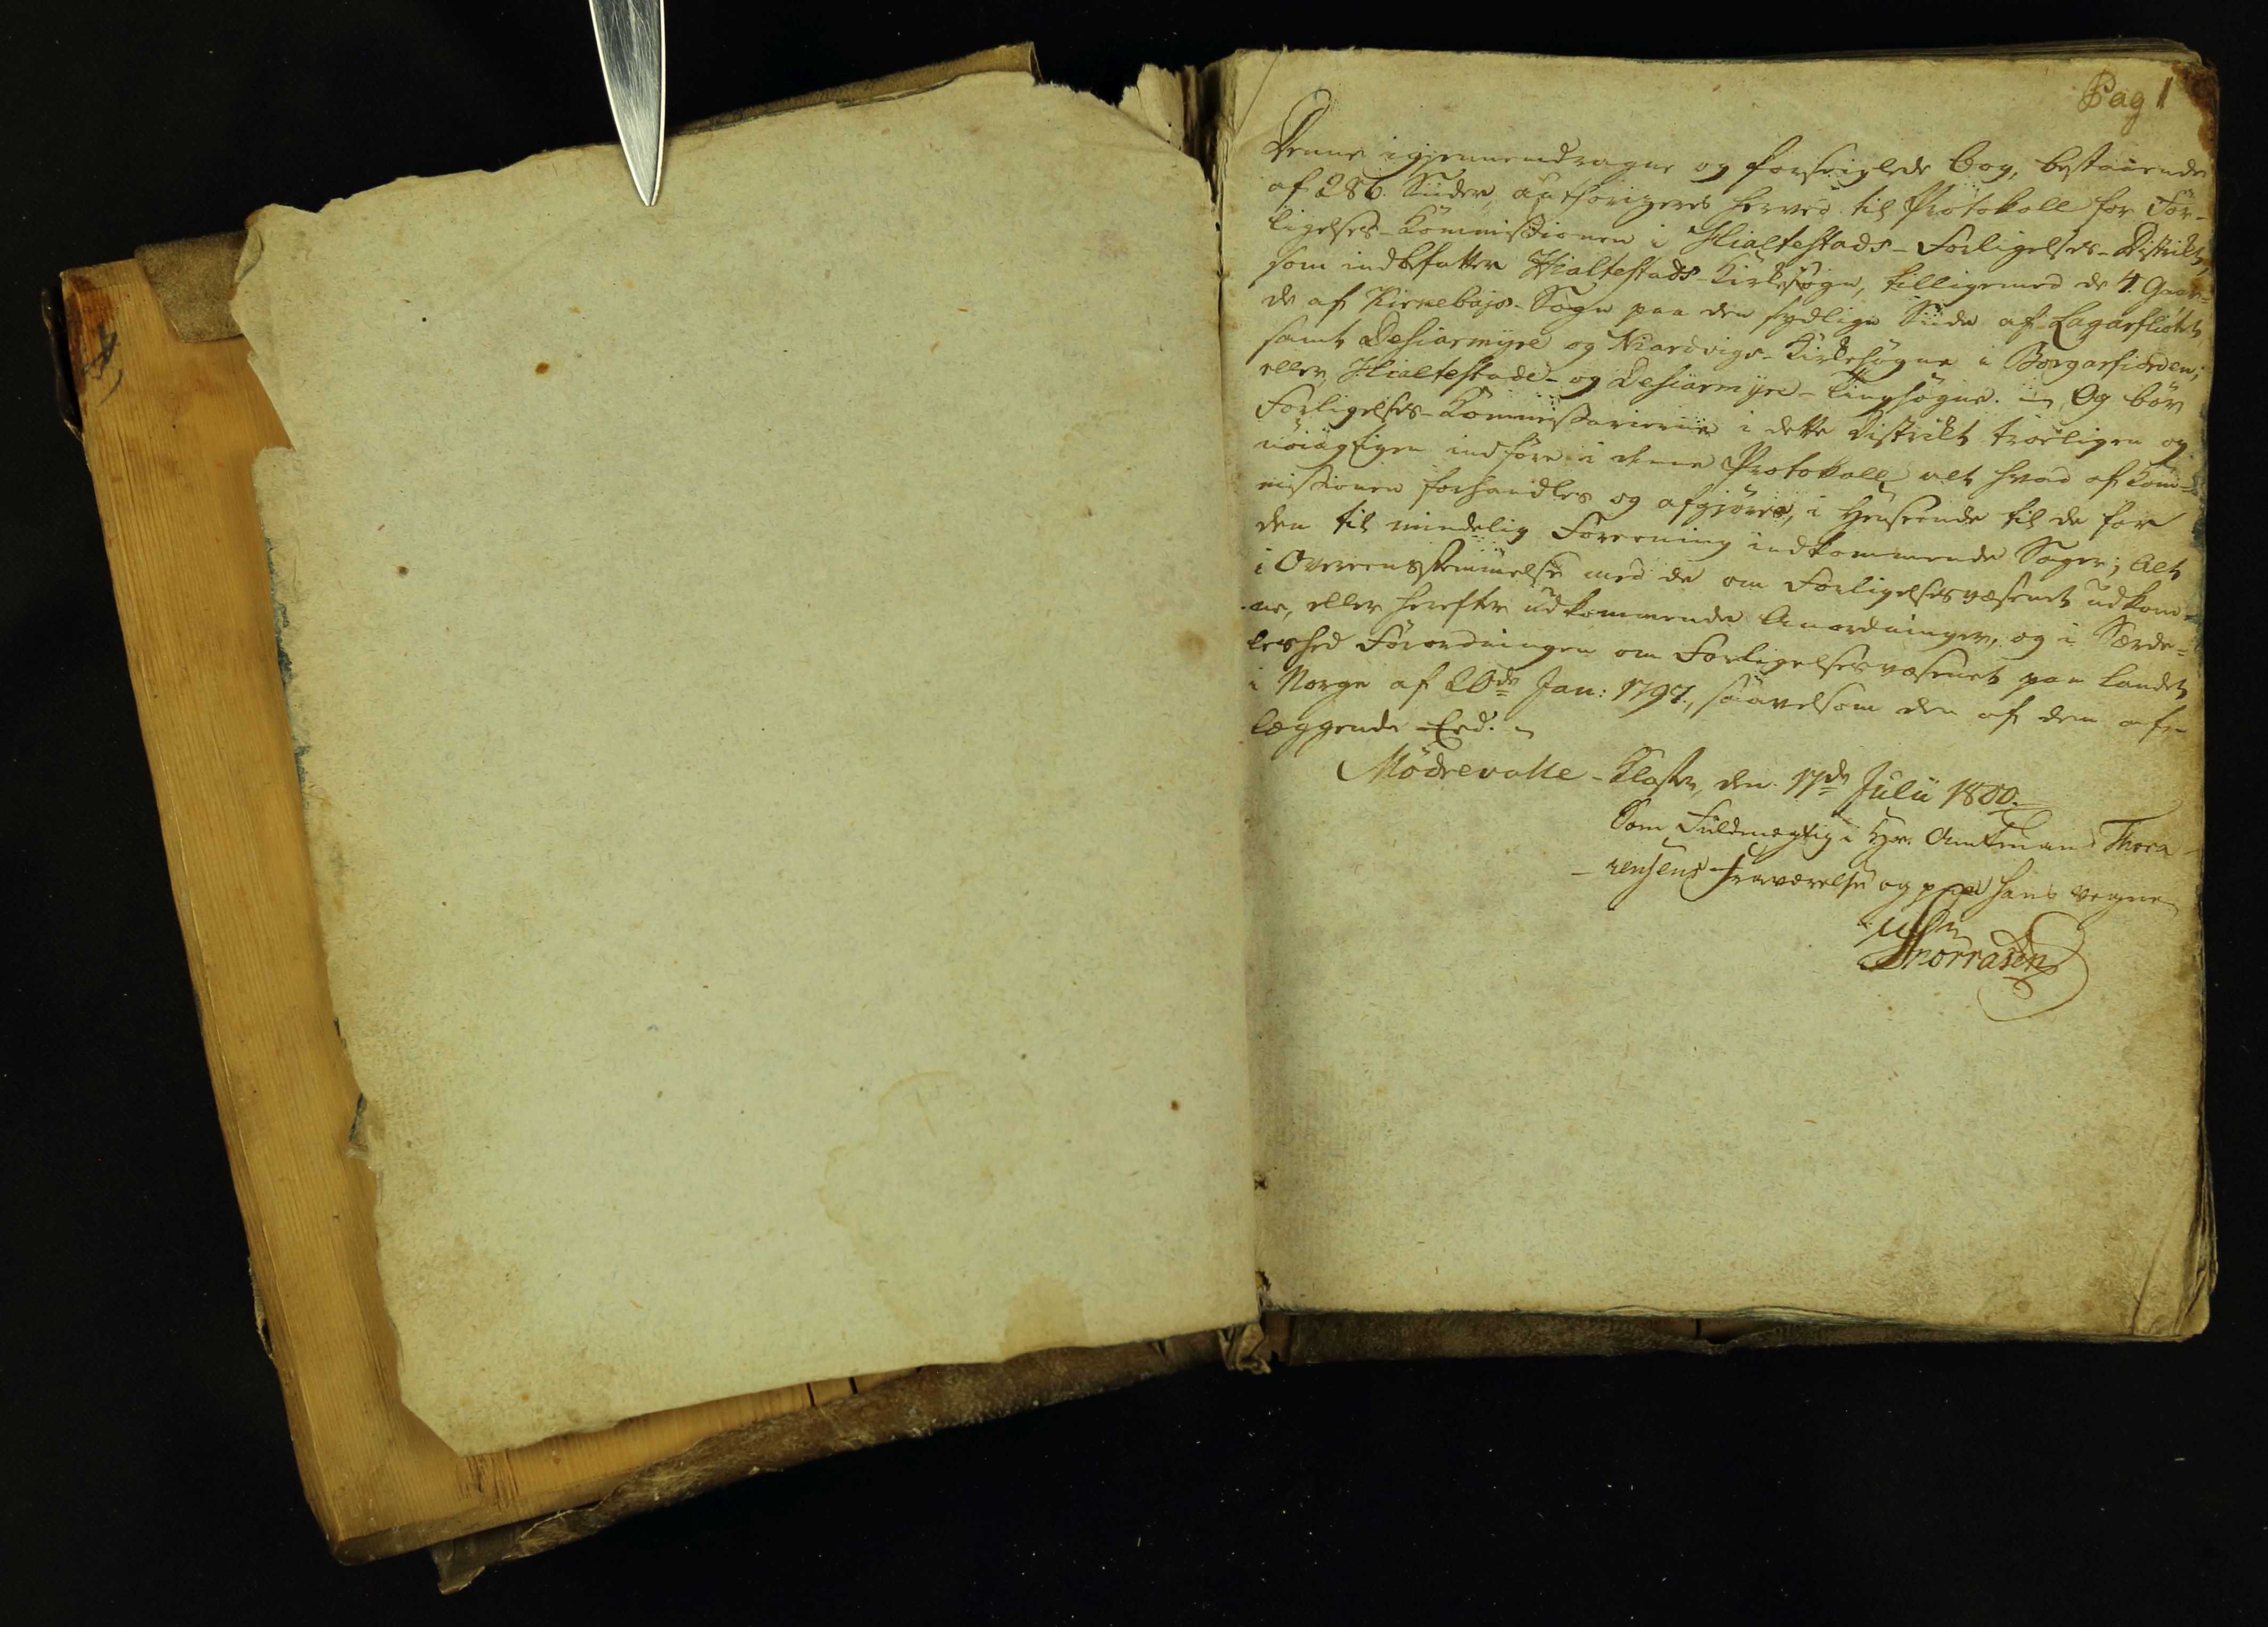 Pag 1
Denne igjennemdragne og forseiglede Bog, bestaaende
af 286. Siider, authoriseres herved til Protokoll for For-
ligelses-Kommissionen i Hialtestads-Forligelses-Distrikt,
som indbefatter Hialtestads-Kirkesogn, tilligemed de 4. Gaar-
de af Kirkebæjar-Sogn paa den sydlige Siide af Lagarfliótet,
samt Desiarmyre og Niardvigs-Kirkesogne i Borgarfiorden;
eller, Hialtestade- og Desiarmyre-Tingsogne. Og bör
Forligelses-Kommissarierne i dette Distrikt troeligen og
nöiagtigen indföre i denne Protokoll alt hvad af Kom-
missionen forhandles og afgiöres, i Henseende til de for
den til mindelig Foreening indkommende Sager; Alt
i Overeensstemmelse med de om Forligelsesvæsenet udkom-
ne, eller herefter udkommende Anordninger, og i Særde-
leshed Forordningen om Forligelsesvæsenet paa Landet
i Norge af 20de Jan: 1797., saavelsom den af dem af-
læggende Eed.
Mödrevalle-Kloster, den 17de Julii 1800.
Som Fuldmægtig i Hr. Amtmand Thora-
rensens Fraværelse og paa hans Vegne
Snorrasen